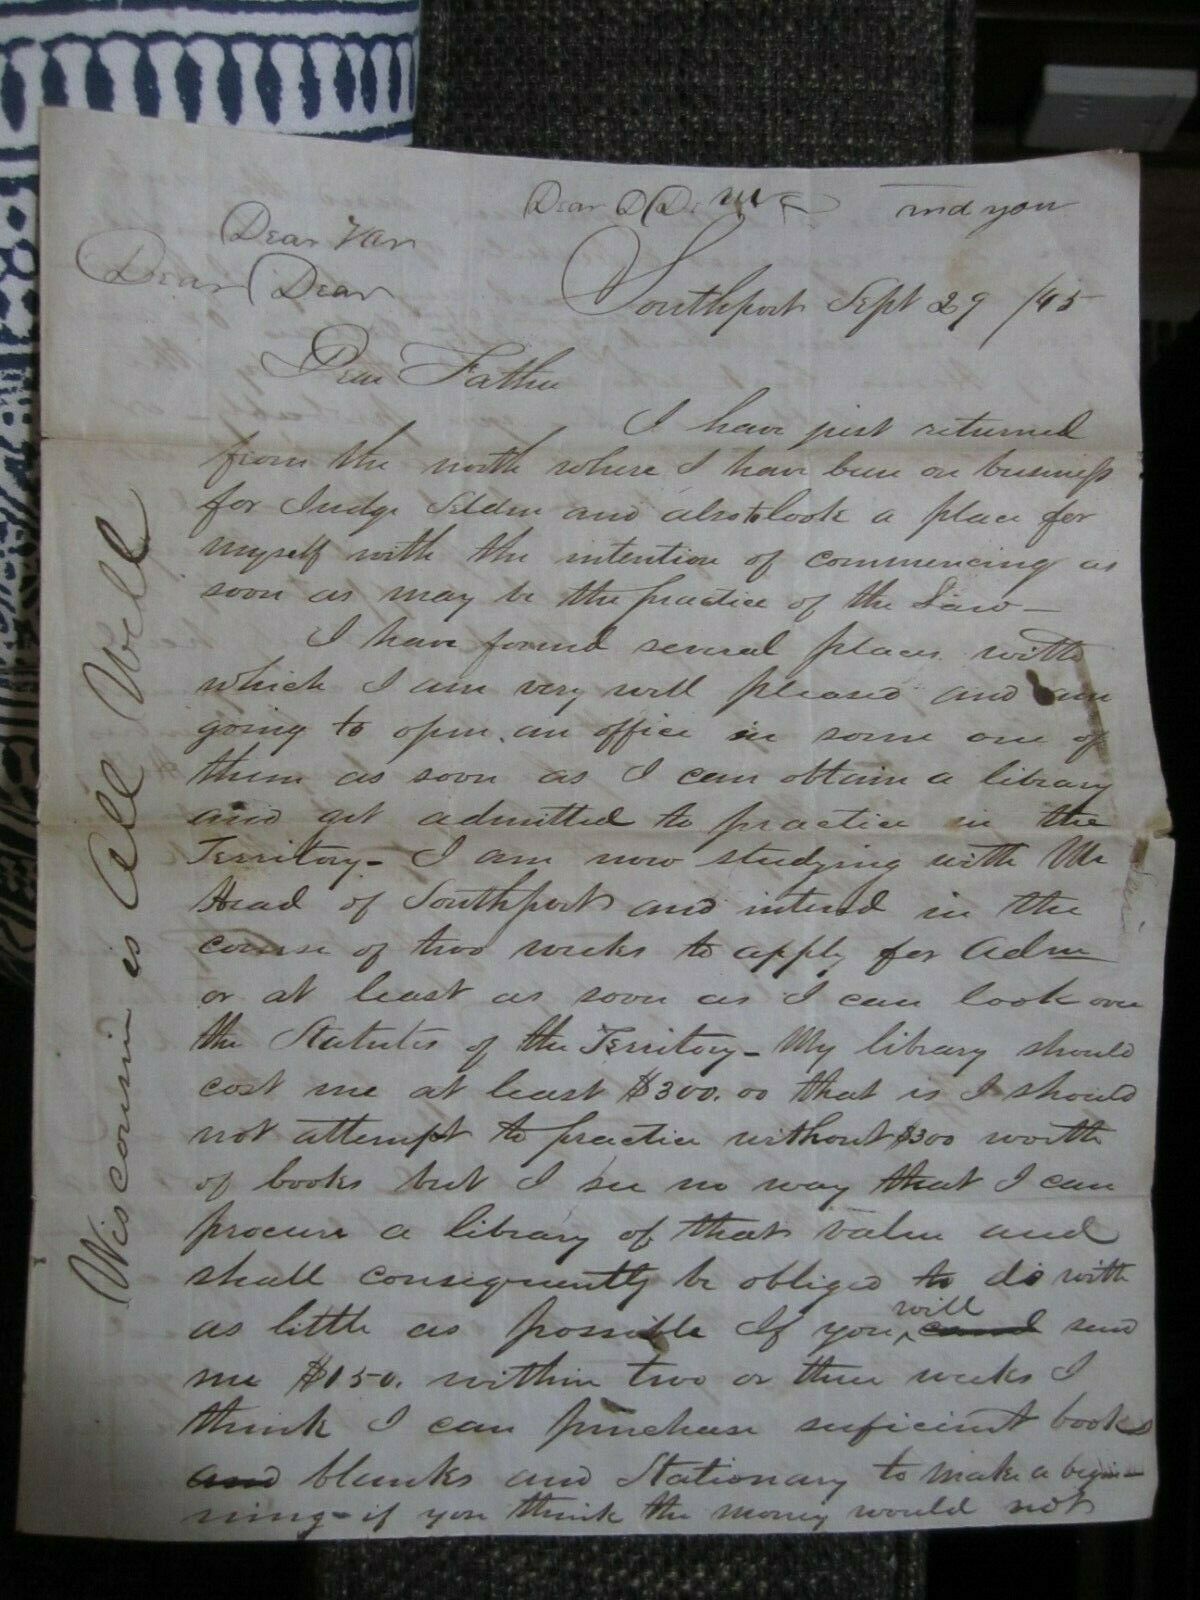 Dear D De me and you
Dear Van
Dear Dear
Southport Sept 29 /45
Dear Father
I have just returned
from the north where I have been on business
for Judge Selden and also to look a place for
myself with the intention of commencing as
soon as may be the practice of the Law—
I have found several places with
which I am very well pleased and am
going to open an office in some one of
them as soon as I can obtain a library
and get admitted to practice in the
Territory— I am now studying with Mr
Head of Southport and intend in the
course of two weeks to apply for Adm
or at least as soon as I can look over
the Statutes of the Territory— My library should
cost me at least $300.00 that is I should
not attempt to practice without $300 worth
of books but I see no way that I can
procure a library of that value and
shall consequently be obliged to do with
as little as possible If you will send
me $150. within two or three weeks I
think I can purchase suficient books
and blanks and Stationary to make a begin-
ning— if you think the money would not
Wisconsin is All Well